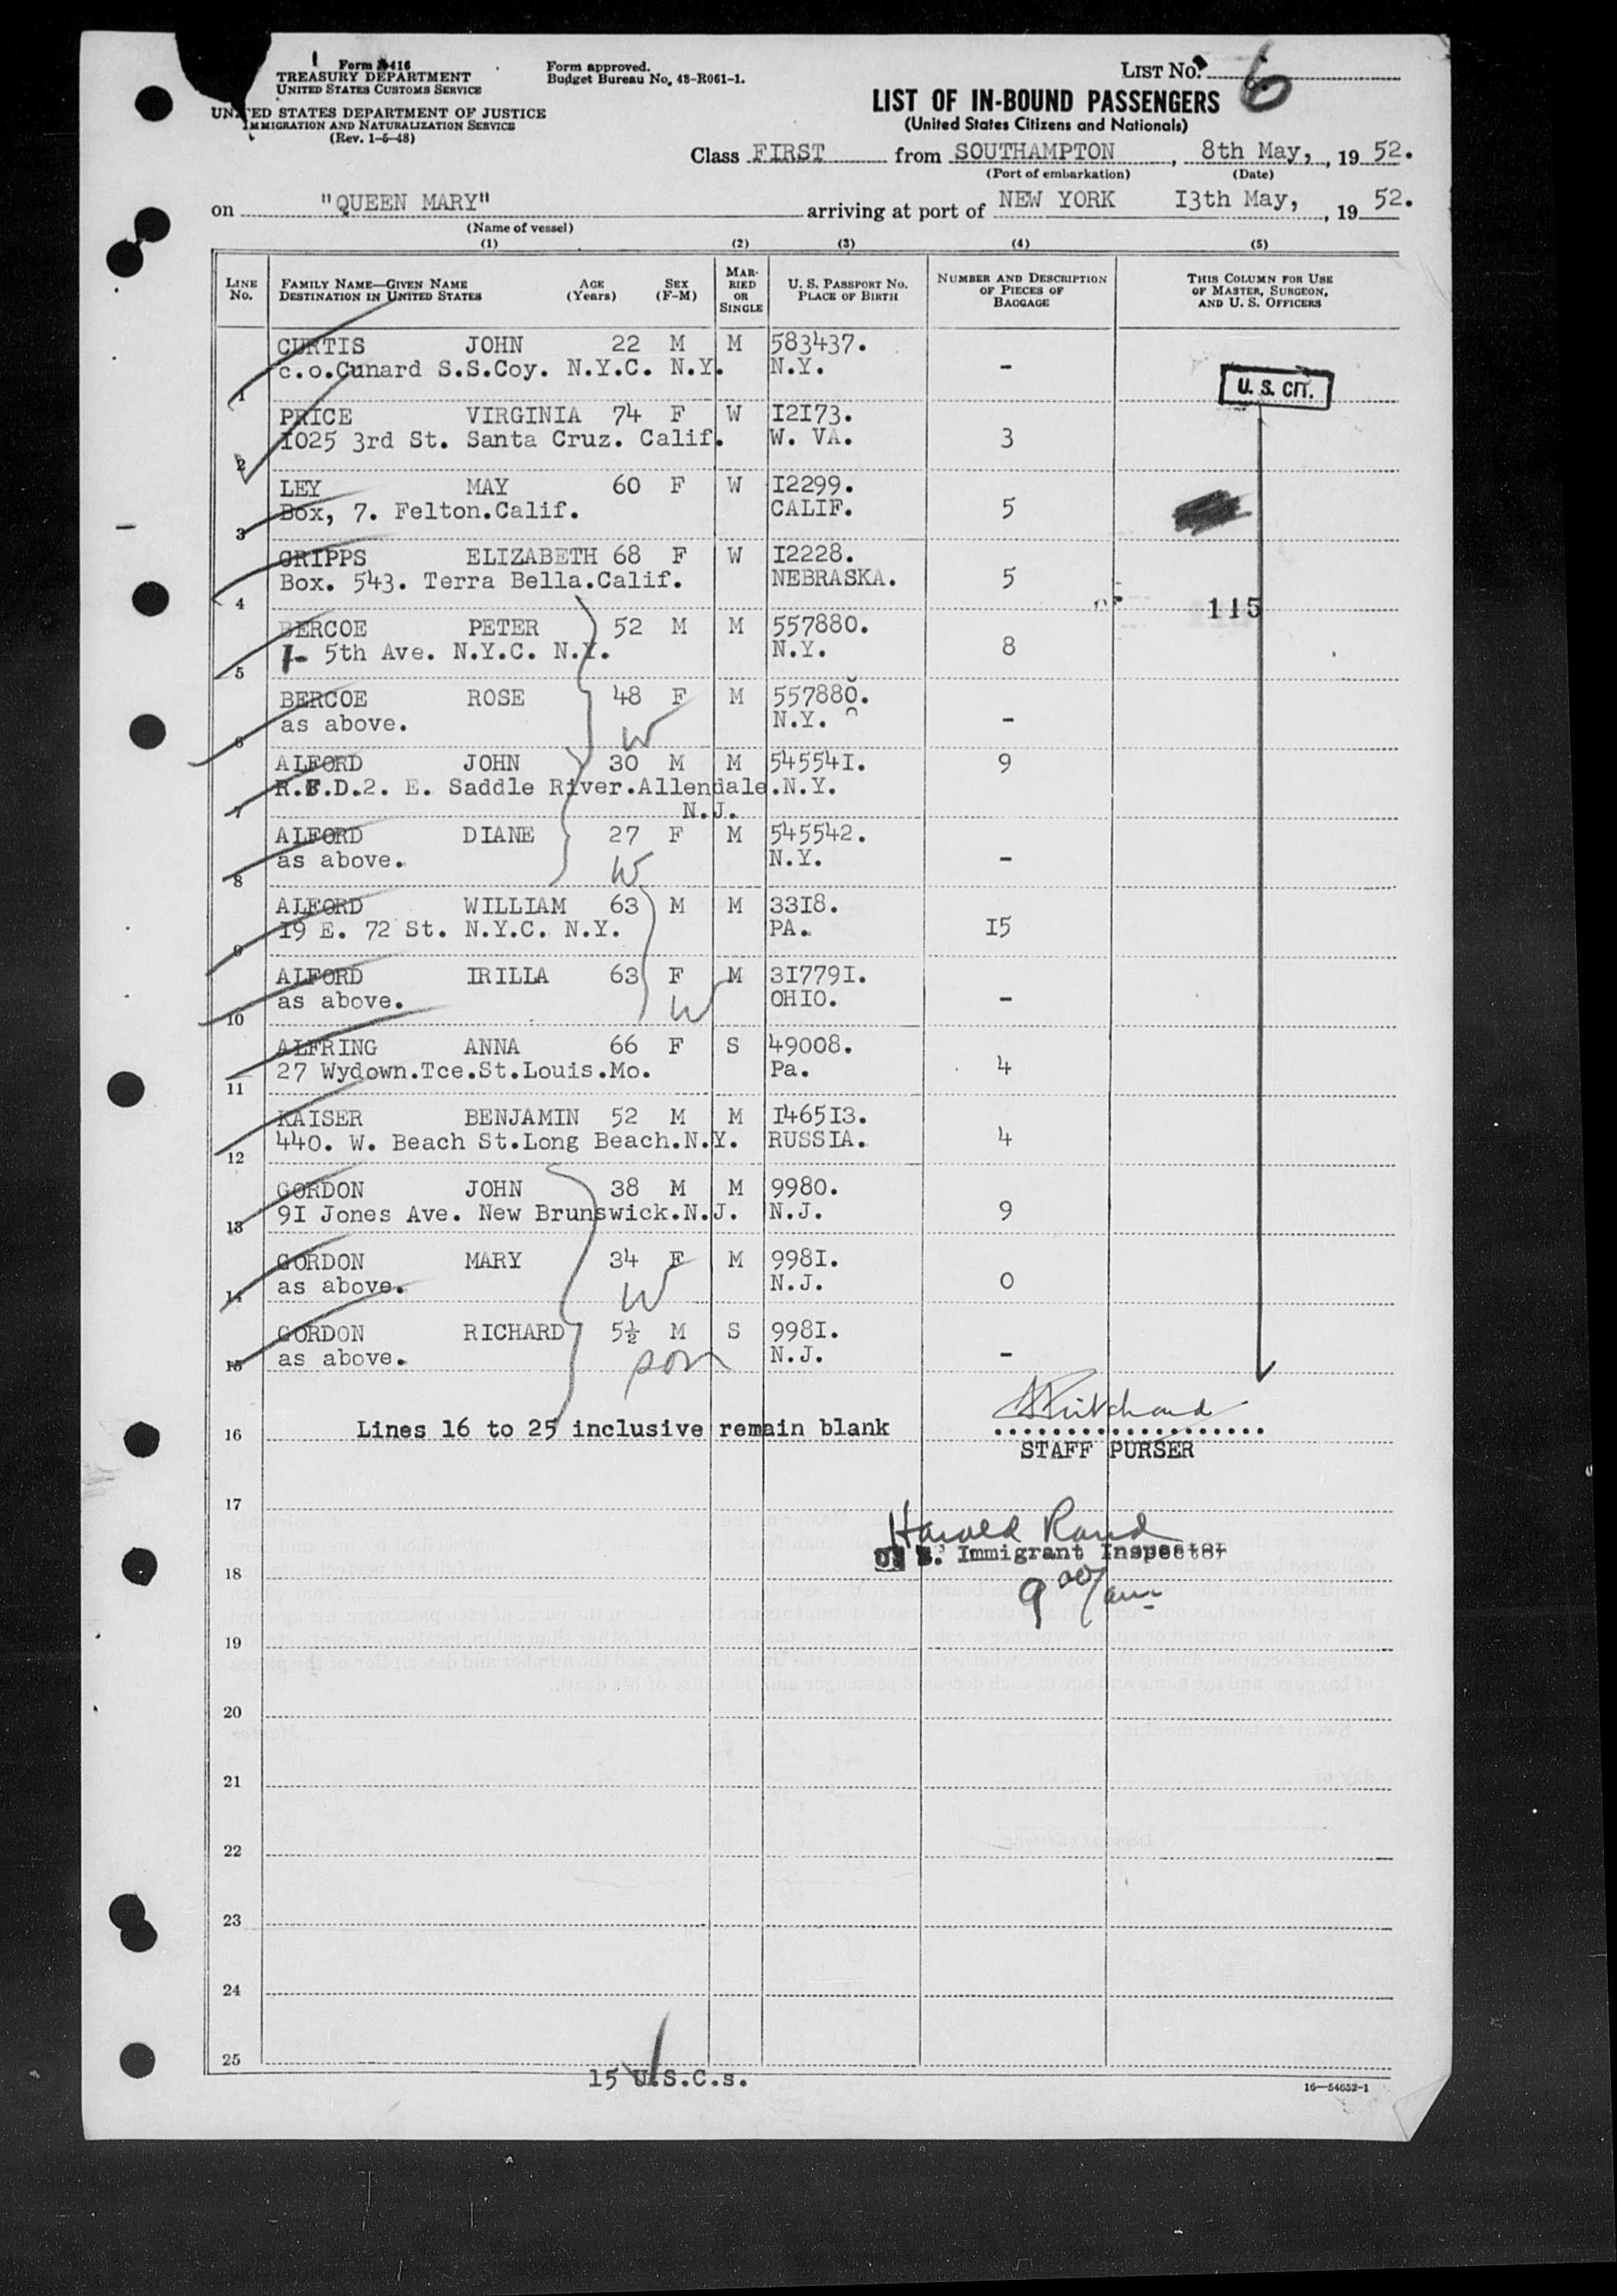 Form I-416
TREASURY DEPARTMENT
UNITED STATES CUSTOMS SERVICE
UNITED STATES DEPARTMENT OF JUSTICE
IMMIGRATION AND NATURALIZATION SERVICE
(Rev. 1-5-48)
Form approved.
Budget Bureau No. 43-R061-1.
LIST NO. 6
LIST OF IN-BOUND PASSENGERS
(United States Citizens and Nationals)
Class FIRST from SOUTHAMPTON, 8th May, , 19 52.
(Port of embarkation) (Date)
on "QUEEN MARY" arriving at port of NEW YORK I3th May, , 19 52.
(Name of vessel)
(1) (2) (3) (4) (5)
LINE No. FAMILY NAME—GIVEN NAME DESTINATION IN UNITED STATES AGE (Years) SEX (F-M) MARRIED OR SINGLE U. S. PASSPORT NO. PLACE OF BIRTH NUMBER AND DESCRIPTION OF PIECES OF BAGGAGE THIS COLUMN FOR USE OF MASTER, SURGEON, AND U. S. OFFICERS
CURTIS JOHN 22 M M 583437.
1 c.o.Cunard S.S.Coy. N.Y.C. N.Y. N.Y. -
U. S. CIT.
PRICE VIRGINIA 74 F W I2I73.
2 I025 3rd St. Santa Cruz. Calif. W. VA. 3
LEY MAY 60 F W I2299.
3 Box, 7. Felton.Calif. CALIF. 5
GRIPPS ELIZABETH 68 F W I2228.
4 Box. 543. Terra Bella.Calif. NEBRASKA. 5
115
BERCOE PETER 52 M M 557880.
5 1- 5th Ave. N.Y.C. N.Y. N.Y. 8
BERCOE ROSE 48 F M 557880.
6 as above. W N.Y. -
ALFORD JOHN 30 M M 54554I. 9
7 R.F.D.2. E. Saddle River.Allendale.N.Y.
N.J.
ALFORD DIANE 27 F M 545542.
8 as above. W N.Y. -
ALFORD WILLIAM 63 M M 33I8.
9 I9 E. 72 St. N.Y.C. N.Y. PA. I5
ALFORD IRILLA 63 F M 3I779I.
10 as above. W OHIO. -
ALFRING ANNA 66 F S 49008.
11 27 Wydown.Tce.St.Louis.Mo. Pa. 4
KAISER BENJAMIN 52 M M I465I3.
12 440. W. Beach St.Long Beach.N.Y. RUSSIA. 4
GORDON JOHN 38 M M 9980.
13 9I Jones Ave. New Brunswick.N.J. N.J. 9
GORDON MARY 34 F M 998I.
14 as above. W N.J. 0
GORDON RICHARD 5½ M S 998I.
15 as above. son N.J. -
Pritchard
16 Lines 16 to 25 inclusive remain blank
STAFF PURSER
17
Harold Rand
U. S. Immigrant Inspector
18
9 00/am
19
20
21
22
23
24
25
15 U.S.C.s.
16—54652-1